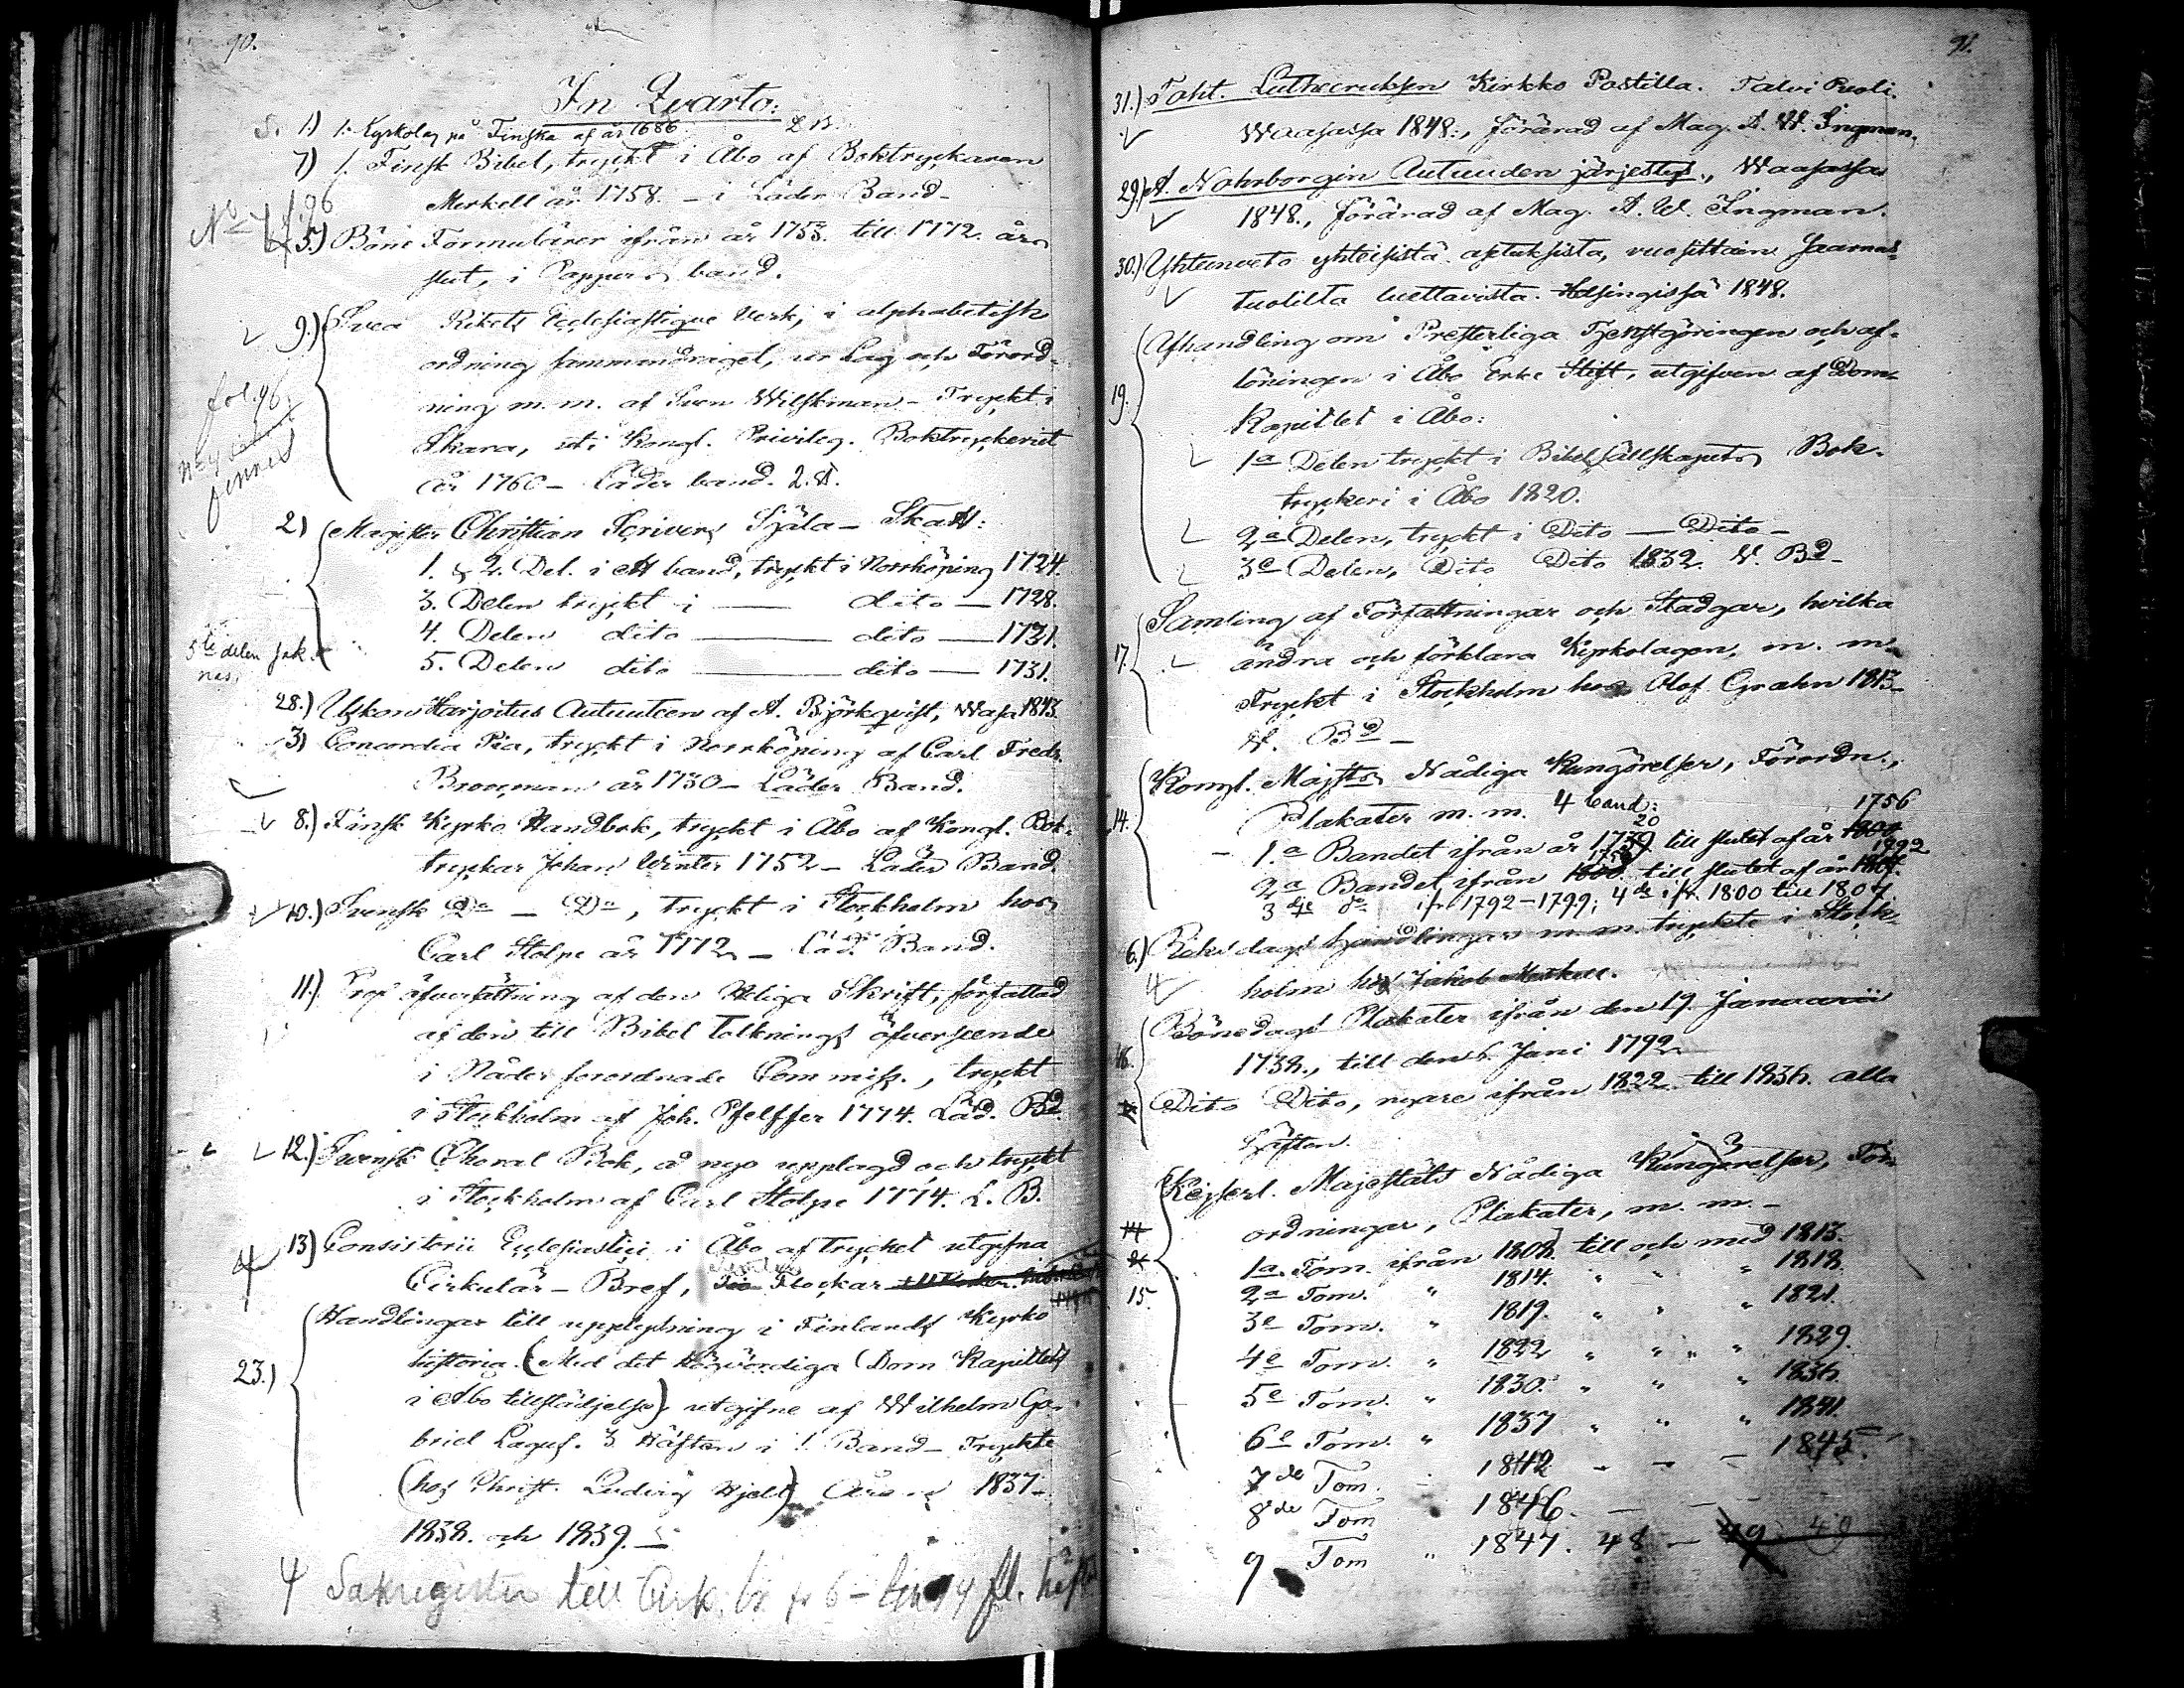 90.
In Qvarto:
1) 1. Kyrkolag på Finska af år 1686. L. B.
7) 1. Finsk Bibel, tryckt i Åbo af Boktryckaren
Merkell år 1758. – i Läder Band –
No 4 f. 96
5.) Böne Formulärer ifrån år 1753. till 1772. års
slut, i Pappers band.
9.) Svea Rikets Ecclesiastique Verk, i alphabetisk
ordning sammandraget, ur Lag och Förord-
ning m. m. af Sven Wilskman – Tryckt i
fol 96
Skara, uti Kongl. Privileg. Boktryckeriet
finnes
år 1760 – Läder band. 2. st.
2) Magister Christian Scrivers Själa – Skatt:
1. & 2. Del. i ett band, tryckt i Norrköping 1724.
3. Delen tryckt i — dito — 1728.
4. Delen dito — dito — 1731.
5te delen saknas
5. Delen dito — dito — 1731.
28.) Uskon Harjoitus Autuuteen af A. Björkqvist, Wasa 1843.
3) Concordia Pia, tryckt i Norrköping af Carl Fredr.
Broocman år 1730 – Läder Band.
8.) Finsk Kyrko Handbok, tryckt i Åbo af Kongl. Bok-
tryckar Johan Winter 1752 – Läder Band.
10.) Svensk Do – Do, tryckt i Stockholm hos
Carl Stolpe år 1772 – Läd. Band.
11.) Prof öfversättning af den Heliga Skrift, författad
af den till Bibel Tolknings öfverseende
i Nåder förordnade Commiss., tryckt
i Stockholm af Joh. Pfeiffer 1774. Läd. Bd.
12.) Svensk Choral Bok, å nyo upplagd och tryckt
i Stockholm af Carl Stolpe 1774. L. B.
13) Consistorii Ecclesiastici i Åbo af trycket utgifna
Cirkulär – Bref, Tio Flockar
23.) Handlingar till upplysning i Finlands Kyrko
historia. (Med det Högvördiga Dom Kapitlets
i Åbo tillstädjelse), utgifne af Wilhelm Ga-
briel Lagus. 3 Häften i 1. Band – Tryckte
(hos Christ. Ludvig Hjelt) Åren 1837 –
1838. och 1839.
4 Sakregister till Cirk. br.
91.
31.) Toht. Lutheruksen Kirkko Postilla. Talvi Puoli.
Waasassa 1848., förärad af Mag. A. W. Ingman.
29.) A. Nohrborgin Autuuden järjestys., Waasassa
1848., förärad af Mag. A. W. Ingman.
30.) Yhteenveto yhteisistä asetuksista, vuosittain Saarna-
tuolilta luettavista. Helsingissä 1848.
19. Afhandling om Presterliga Tjenstgöringen och af-
löningen i Åbo Erke Stift, utgifven af Dom-
Kapitlet i Åbo:
1a Delen tryckt i Bibelsällskapets Bok-
tryckeri i Åbo 1820.
2a Delen, tryckt i Dito — Dito –
3e Delen, Dito Dito 1832. Bd –
17. Samling af Författningar och Stadgar, hvilka
ändra och förklara Kyrkolagen, m. m.
Tryckt i Stockholm hos Olof Grahn 1813 –
Bd –
14. Kongl. Majsts Nådiga Kungörelser, Förordn.,
Plakater m. m. 4 band:
1.a Bandet ifrån år 1739 20 till slutet af år 1800 1756
2a Bandet ifrån 1800 till slutet af år 1792
3dje do ifr 1792 – 1799; 4de ifr. 1800 till 1807
6.) Riksdags handlingar m. m. tryckte i Stock-
holm hos Jakob Merkell.
16. Bönedags Plakater ifrån den 19. Januarii
1738., till den 6. Juni 1792
Dito Dito, nyare ifrån 1822 till 1836. alla
häften.
Kejserl. Majestäts Nådiga Kungörelser, För-
14
ordningar, Plakater, m. m. –
1a Tom. ifrån 1808 till och med 1813.
15.
2a Tom. " 1814. " " " 1818.
3e Tom. " 1819. " " " 1821.
4e Tom. " 1822 " " " 1829.
5e Tom. " 1830. " " " 1836.
6e Tom. " 1837 " " " 1841.
7de Tom. – 1842 – – – 1845.
8de Tom " 1846. –
9 Tom " 1847. 48 – 49